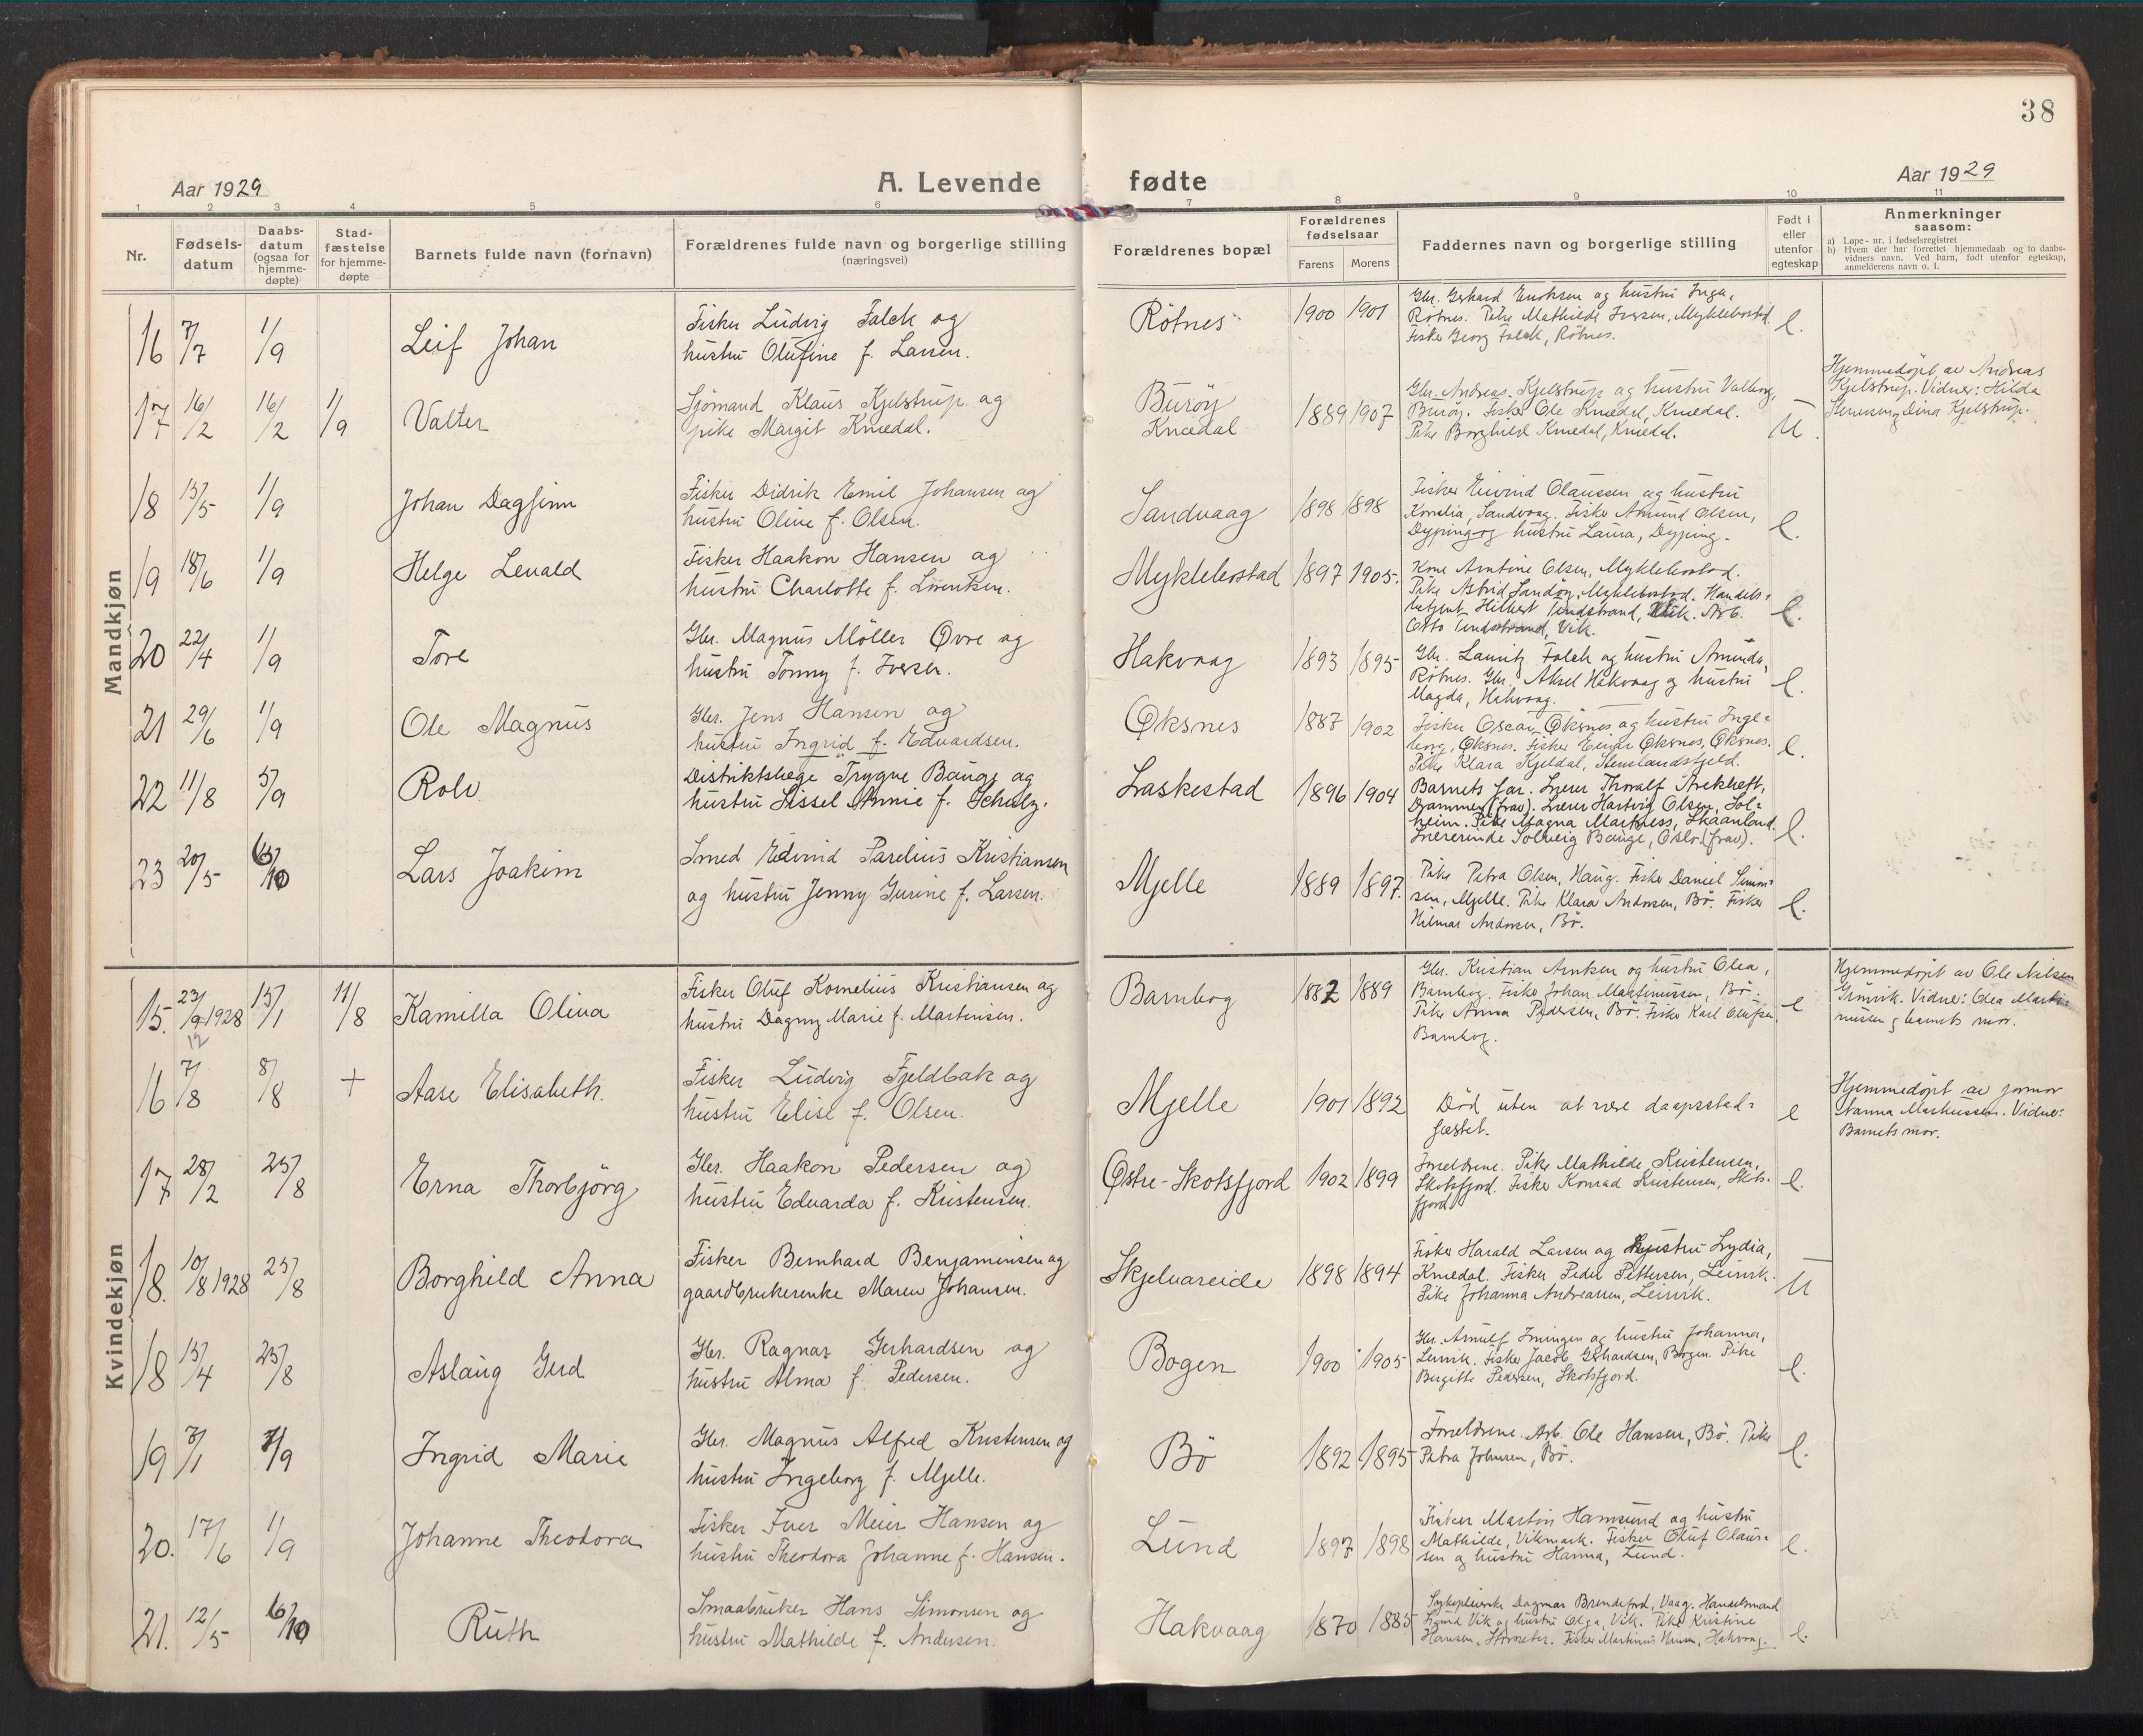 38
Aar 1929
A. Levende fødte
Aar 1929
1 2 3 4 5 6 7 8 9 10 11
Nr.
Fødsels-
datum
Daabs-
datum
(ogsaa for
hjemme-
døpte)
Stad-
fæstelse
for hjemme-
døpte
Barnets fulde navn (fornavn)
Forældrenes fulde navn og borgerlige stilling
(næringsvei)
Forældrenes bopæl
Forældrenes
fødselsaar
Farens Morens
Faddernes navn og borgerlige stilling
Født i
eller
utenfor
egteskap
Anmerkninger
saasom:
a) Løpe-nr. i fødselsregistret
b) Hvem der har forrettet hjemmedaab og to daabs-
vidners navn. Ved barn, født utenfor egteskap,
anmelderens navn o. l.
Mandkjøn
16 7/7 1/9 Leif Johan
Fisker Ludvig Falck og
hustru Olufine f. Larsen.
Røtnes 1900 1901
Gbr. Gerhard Eriksen og hustru Inga,
Røtnes. Pike Mathilde Iversen, Myklebostad.
Fisker Georg Falck, Røtnes.
e.
17 16/2 16/2 1/9 Valter
Sjømand Klaus Kjelstrup og
pike Margit Knædal.
Burøy
Knædal
1889 1907
Gbr. Andreas Kjelstrup og hustru Valborg,
Burøy. Fisker Ole Knædal, Knædal.
Pike Borghild Knædal, Knædal.
U.
Hjemmedøpt av Andreas
Kjelstrup. Vidner: Hilda
og Dina Kjelstrup.
18 15/5 1/9 Johan Dagfinn
Fisker Didrik Emil Johansen og
hustru Oline f. Olsen.
Sandvaag 1898 1898
Fisker Eivind Olaussen og hustru
Kornelia, Sandvaag. Fisker Amund Olsen,
Dyping og hustru Laura, Dyping.
e.
19 18/6 1/9 Helge Levald
Fisker Haakon Hansen og
hustru Charlotte f. Lorentzen.
Myklebostad 1897 1905.
Kone Arntine Olsen, Myklebostad.
Pike Astrid Sandøy, Myklebostad. Handels-
betjent Hilbert Tindstrand, Vik. Arb.
Otto Tindstrand, Vik.
e.
20 22/4 1/9 Tore
Gbr. Magnus Möller Øvre og
hustru Tonny f. Iversen.
Hakvaag 1893 1895
Gbr. Lauritz Falch og hustru Amunda,
Røtnes. Gbr. Aksel Hakvaag og hustru
Magda, Hakvaag.
e.
21 29/6 1/9 Ole Magnus
Gbr. Jens Hansen og
hustru Ingrid f. Edvardsen.
Øksnes 1887 1902
Fisker Oscar Øksnes og hustru Inge-
borg, Øksnes. Fisker Einar Øksnes, Øksnes.
Pike Klara Kjeldal,
e.
22 11/8 5/9 Rolv
Distriktslæge Trygve Bauge og
hustru Sissel Annie f. Schulz.
Laskestad 1896 1904
Barnets far. Lærer Thorvalf
Drammen (frav). Lærer Hartvig Olsen, Sol-
heim. Pike Magna Martness, Skaanland.
Lærerinde Solveig Bauge, Oslo (frav).
e.
23 20/5 6/10 Lars Joakim
Smed Edvind Parelius Kristiansen
og hustru Jenny Gurine f. Larsen.
Mjelle 1889 1897.
Pike Petra Olsen, Haug. Fisker Daniel Simon-
sen, Mjelle. Pike Klara Andersen, Bö. Fisker
Hilmar Andersen, Bö.
e.
Kvindekjøn
15. 23/9 1928 12 15/1 11/8 Kamilla Oliva
Fisker Oluf Kornelius Kristiansen og
hustru Dagny Marie f. Martinsen.
Barnhog 1887 1889
Gbr. Kristian Arntsen og hustru Olea,
Barnhog. Fisker Johan Martinussen, Bö.
Pike Anna Pedersen, Bö. Fisker Karl Olufsen,
Barnhog.
e
Hjemmedøpt av Ole Nilsen
Grönvik. Vidner: Olea Marti-
nussen og barnets mor.
16 7/8 8/8 + Aase Elisabeth.
Fisker Ludvig Fjeldbak og
hustru Elise f. Olsen.
Mjelle 1901 1892
Död uten at være daapsstad-
fæstet.
e
Hjemmedøpt av farmor
Nanna Markussen. Vidne:
Barnets mor.
17 28/2 25/8 Erna Thorbjörg
Gbr. Haakon Pedersen og
hustru Edvarda f. Kristensen.
Østre-Skotsfjord 1902 1899
Forældrene. Pike Mathilde Kristensen,
Skotsfjord. Fisker Konrad Kristensen, Skots-
fjord.
e.
18. 10/8 1928 25/8 Borghild Anna
Fisker Bernhard Benjaminsen og
gaardbrukerenke Maren Johansen.
Skjelvareide 1898 1894
Fisker Harald Larsen og hustru Lydia,
Knædal. Fisker Peder Pettersen, Leirvik.
Pike Johanna Andreassen, Leirvik.
U
18 15/4 25/8 Aslaug Gerd
Gbr. Ragnar Gerhardsen og
hustru Alma f. Pedersen.
Bogen 1900 1905
Gbr. Arnulf Imingen og hustru Johanna,
Leirvik. Fisker Jacob Gerhardsen, Bogen. Pike
Birgitte Pedersen, Skotsfjord.
e.
19 3/1 1/9 Ingrid Marie
Gbr. Magnus Alfred Kristensen og
hustru Ingeborg f. Mjelle.
Bö 1892 1895
Forældrene. Arb. Ole Hansen, Bö. Pike
Petra Johnsen, Bö.
e.
20. 17/6 1/9 Johanne Theodora
Fisker Iver Meier Hansen og
hustru Theodora Johanne f. Hansen.
Lund 1897 1898
Fisker Martin Hamsund og hustru
Mathilde, Vikmark. Fisker Oluf Olaus-
sen og hustru Hanna, Lund.
e.
21. 12/5 6/10 Ruth
Smaabruker Hans Simonsen og
hustru Mathilde f. Andersen.
Hakvaag 1870 1885
Sykepleierske Dagmar Brendeford, Vaag. Handelsmand
Sigurd Vik og hustru Olga, Vik. Pike Kristine
Hansen, Storsæter. Fisker Martinus Hansen, Hakvaag.
e.